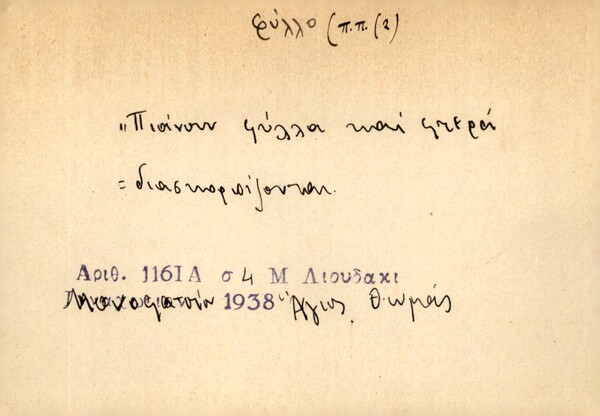 φύλλο (π.π. (2)
"Πιάνουν φύλλα καί φτερά
= διασκορπίζονται.
Αριθ. 1161Α σ 4 Μ Λιουδακι
1938 Άγιος Θωμάς